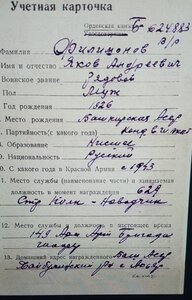 Учетная карточка
Орденская книжка Б № 624883
Удостоверение в/р
Фамилия Филимонов
Имя и отчество Яков Андреевич
Воинское звание Рядовой
Пол Муж
Год рождения 1926
4. Место рождения Башкирская АССР
5. Партийность (с какого года) канд в чл
6. Образование Низшее
9. Национальность Русский
10. С какого года в Красной Армии с 1943
11. Место службы (наименование части) и занимаемая
должность в момент награждения 629
Стр Полк - Наводчик
12. Место службы и занимаемая должность в настоящее время
143 Арм Арт Бригада
13. Домашний адрес награжденного Баш АССР